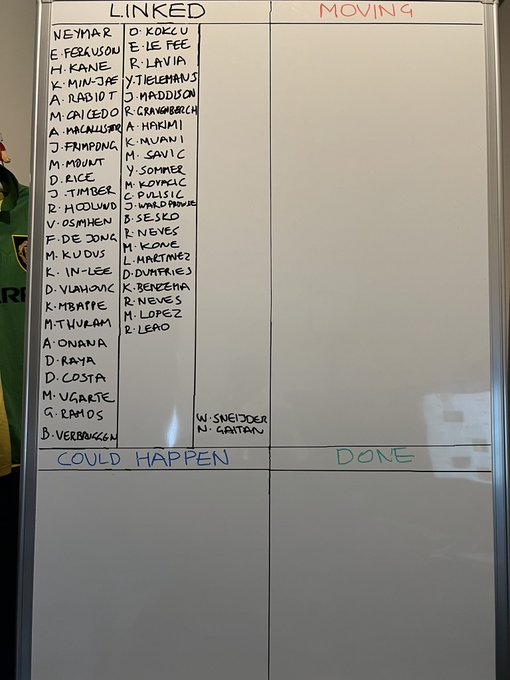 LINKED
MOVING
NEYMAR
E. FERGUSON
H. KANE
K. MIN-JAE
A. RABIOT
M. CAICEDO
A. MACALLISTER
J. FRIMPONG
M. MOUNT
D. RICE
J. TIMBER
R. HOJLUND
V. OSIMHEN
F. DE JONG
M. KUDUS
K. IN-LEE
D. VLAHOVIC
K. MBAPPE
M. THURAM
A. ONANA
D. RAYA
D. COSTA
M. UGARTE
G. RAMOS
B. VERBRUGGEN
O. KOKCU
E. LE FEE
R. LAVIA
Y. TIELEMANS
J. MADDISON
R. GRAVENBERCH
A. HAKIMI
K. MUANI
M. SAVIC
Y. SOMMER
M. KOVACIC
C. PULISIC
J. WARD PROWSE
B. SESKO
R. NEVES
M. KONE
L. MARTINEZ
D. DUMFRIES
K. BENZEMA
R. NEVES
M. LOPEZ
R. LEAO
W. SNEIJDER
N. GAITAN
COULD HAPPEN
DONE